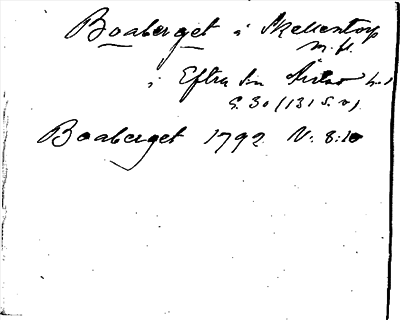 Boaberget i Skellentorp
m. fl.
i Eftra sn Årstad h.d
S. 30 (131 S. v.)
Boaberget 1792 V: 8:10